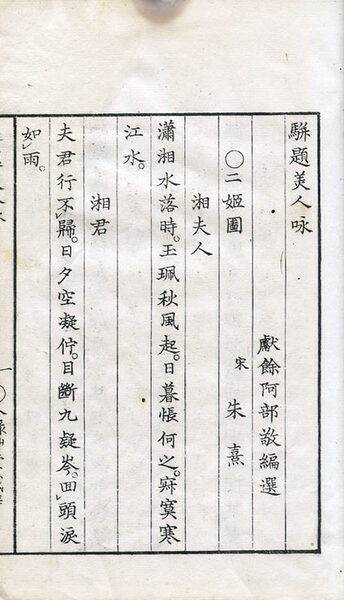 駢題美人咏
獻餘阿部敬編選
〇二姬圖
宋 朱熹
湘夫人
瀟湘水落時。玉珮秋風起。日暮悵何之。寂寞寒
江水。
湘君
夫君行不歸。日夕空凝佇。目斷九疑岑。回頭淚
如雨。